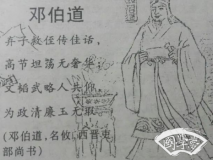 邓伯道
弃子救侄传佳话，
高节坦荡无奢华。
文韬武略人共仰，
为政清廉玉无瑕。
(邓伯道，名攸，西晋吏
部尚书)